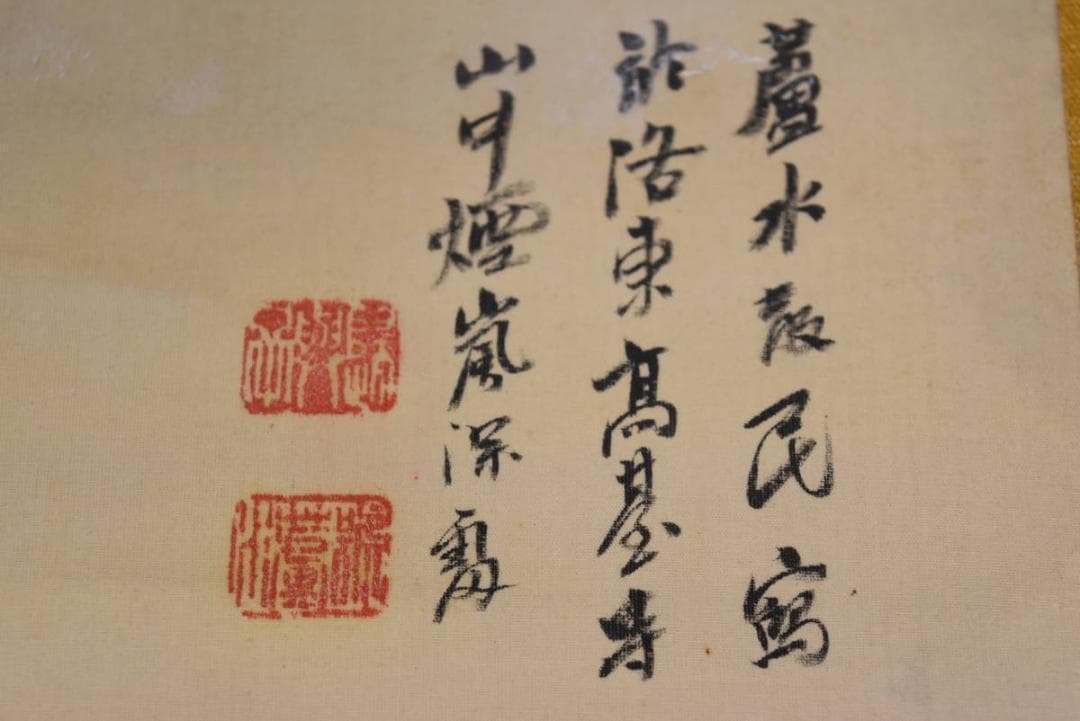 蘆水散民寫
於洛東高基寺
山中煙嵐深處